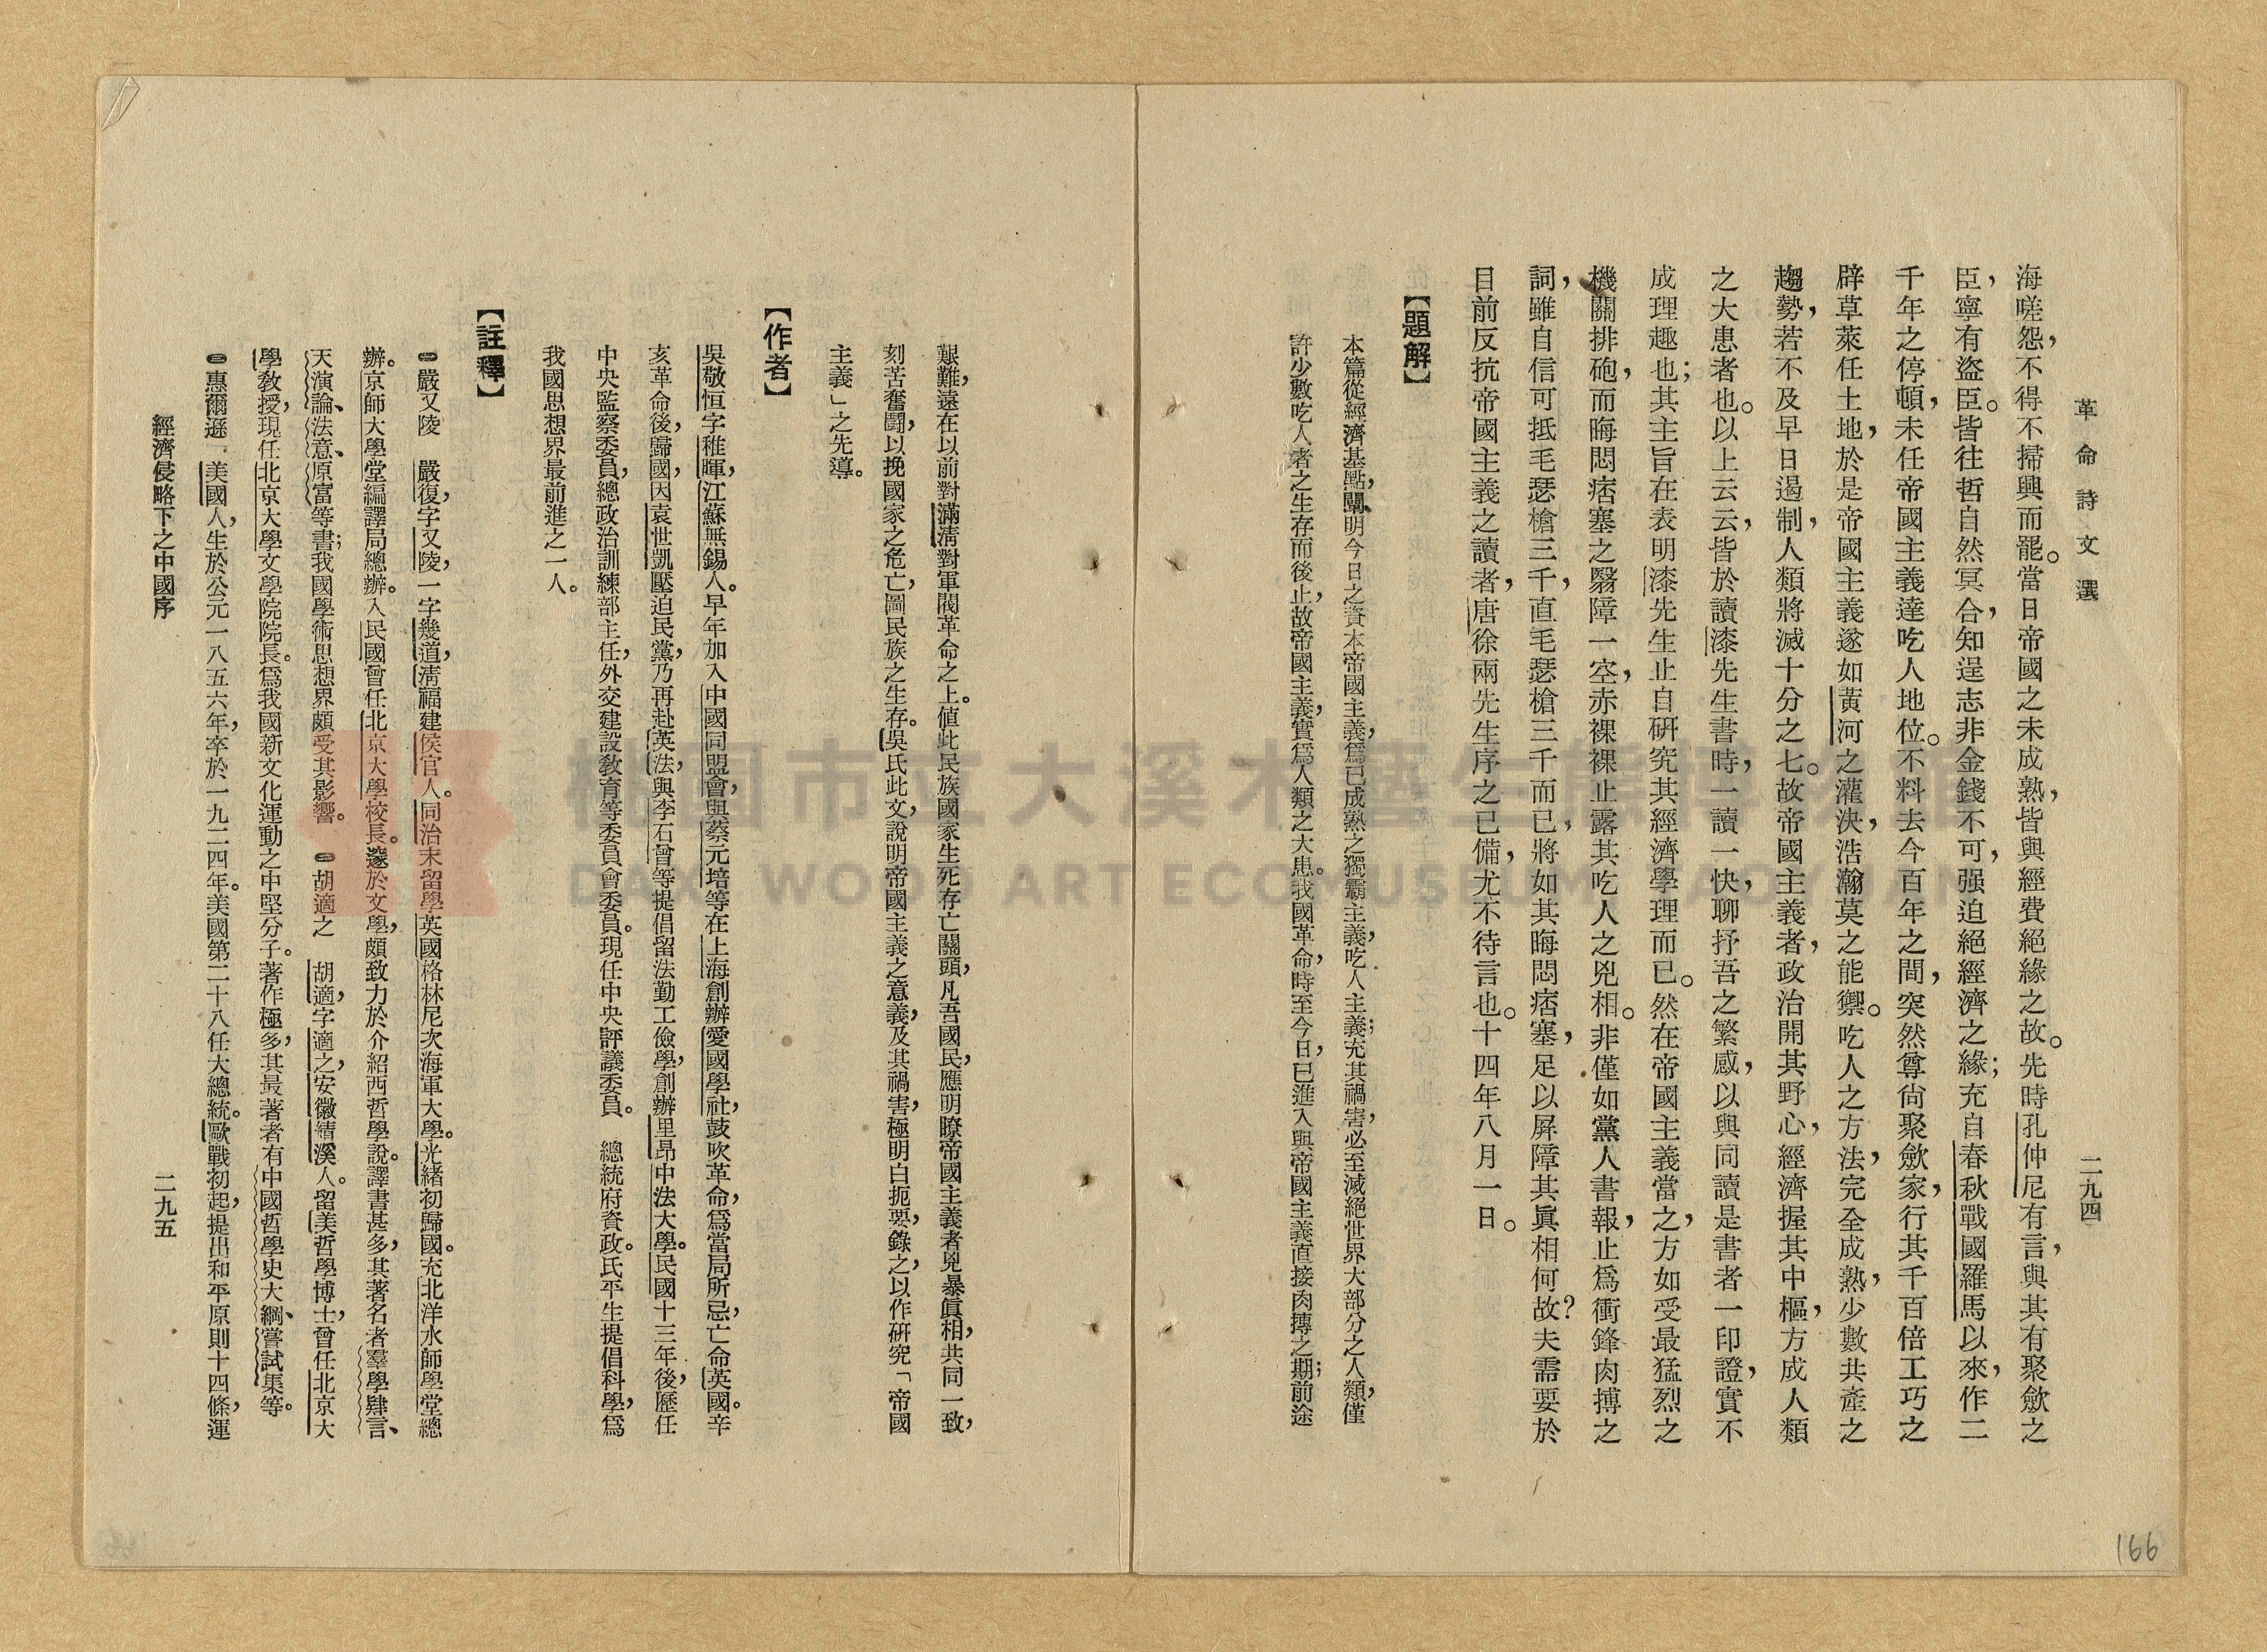 革命詩文選
二九四
海嗟怨，不得不掃興而罷。當日帝國之未成熟，皆與經費絕緣之故。先時孔仲尼有言，與其有聚斂之
臣，寧有盜臣。皆往哲自然冥合，知逞志非金錢不可，强迫絕經濟之緣；充自春秋戰國羅馬以來，作二
千年之停頓，未任帝國主義達吃人地位。不料去今百年之間，突然尊尙聚斂家，行其千百倍工巧之
辟草萊任土地，於是帝國主義遂如黃河之灌決，浩瀚莫之能禦。吃人之方法，完全成熟，少數共產之
趨勢，若不及早日遏制，人類將滅十分之七。故帝國主義者，政治開其野心，經濟握其中樞，方成人類
之大患者也。以上云云，皆於讀漆先生書時，一讀一快，聊抒吾之繁感，以與同讀是書者一印證，實不
成理趣也；其主旨在表明漆先生止自硏究其經濟學理而已。然在帝國主義當之，方如受最猛烈之
機關排砲，而晦悶痞塞之翳障一空，赤裸裸止露其吃人之兇相。非僅如黨人書報，止爲衝鋒肉搏之
詞，雖自信可抵毛瑟槍三千，直毛瑟槍三千而已，將如其晦悶痞塞，足以屏障其眞相何故？夫需要於
目前反抗帝國主義之讀者，唐徐兩先生序之已備，尤不待言也。十四年八月一日。
【題解】
本篇從經濟基點，闡明今日之資本帝國主義，爲已成熟之獨霸主義，吃人主義；充其禍害，必至滅絕世界大部分之人類，僅
許少數吃人者之生存而後止，故帝國主義，實爲人類之大患。我國革命，時至今日，已進入與帝國主義直接肉搏之期；前途
艱難，遠在以前對滿淸對軍閥革命之上。値此民族國家生死存亡關頭，凡吾國民，應明瞭帝國主義者兇暴眞相，共同一致，
刻苦奮鬭，以挽國家之危亡，圖民族之生存。吳氏此文，說明帝國主義之意義，及其禍害，極明白扼要，錄之，以作硏究「帝國
主義」之先導。
【作者】
吳敬恒字稚暉，江蘇無錫人。早年加入中國同盟會，與蔡元培等在上海創辦愛國學社，鼓吹革命，爲當局所忌，亡命英國。辛
亥革命後，歸國，因袁世凱壓迫民黨，乃再赴英法，與李石曾等提倡留法勤工儉學，創辦里昂中法大學。民國十三年後，歷任
中央監察委員，總政治訓練部主任，外交建設敎育等委員會委員。現任中央評議委員。　總統府資政。氏平生提倡科學，爲
我國思想界最前進之一人。
【註釋】
㊀嚴又陵　嚴復，字又陵，一字幾道，淸福建侯官人。同治末留學英國格林尼次海軍大學。光緒初歸國。充北洋水師學堂總
辦。京師大學堂編譯局總辦。入民國曾任北京大學校長。邃於文學，頗致力於介紹西哲學說。譯書甚多，其著名者羣學肄言、
天演論、法意、原富等書；我國學術思想界頗受其影響。　㊁胡適之　胡適，字適之，安徽績溪人。留美哲學博士，曾任北京大
學敎授，現任北京大學文學院院長。爲我國新文化運動之中堅分子。著作極多，其最著者有中國哲學史大綱、嘗試集等。
㊂惠爾遜　美國人，生於公元一八五六年，卒於一九二四年。美國第二十八任大總統。歐戰初起，提出和平原則十四條，運
經濟侵略下之中國序
二九五
166
桃園市立大溪木藝生態博物館
DAXI WOOD ART ECOMUSEUM, TAOYUAN